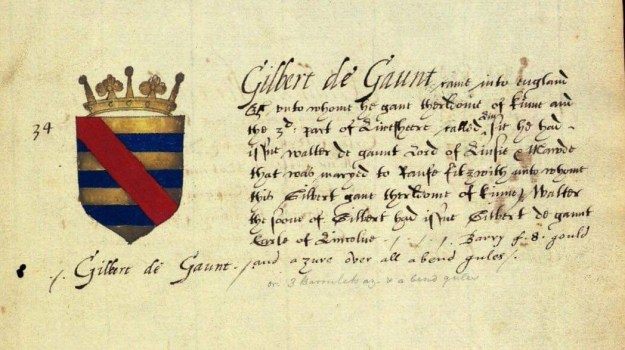 Gilbert de Gaunt came into england
unto whome he gaue the of kime and
34
the 3d. part of called sie he had
issue walter de gaunt Lord of &
that was maryed to Raufe fitzwith unto whome
this Gilbert gaue the of kime / Walter
the soone of Gilbert had issue Gilbert de gaunt
Earle of Lincolne . / . / . / . Barry of .8. gould
./. Gilbert de Gaunt ./. and azure over all a bend gules /.
or. 3 az. & a bend gules